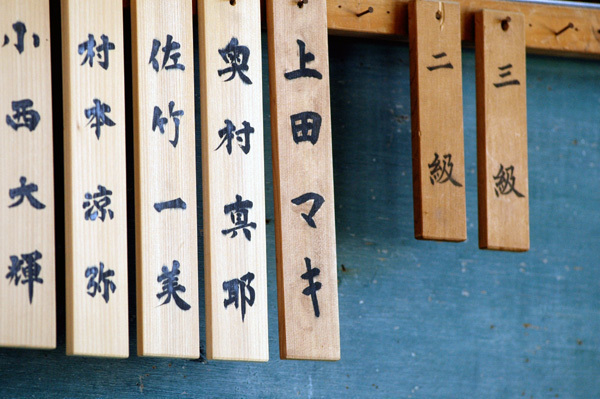 三級
二級
上田マキ
奥村真耶
佐竹一美
村本涼弥
小西大輝